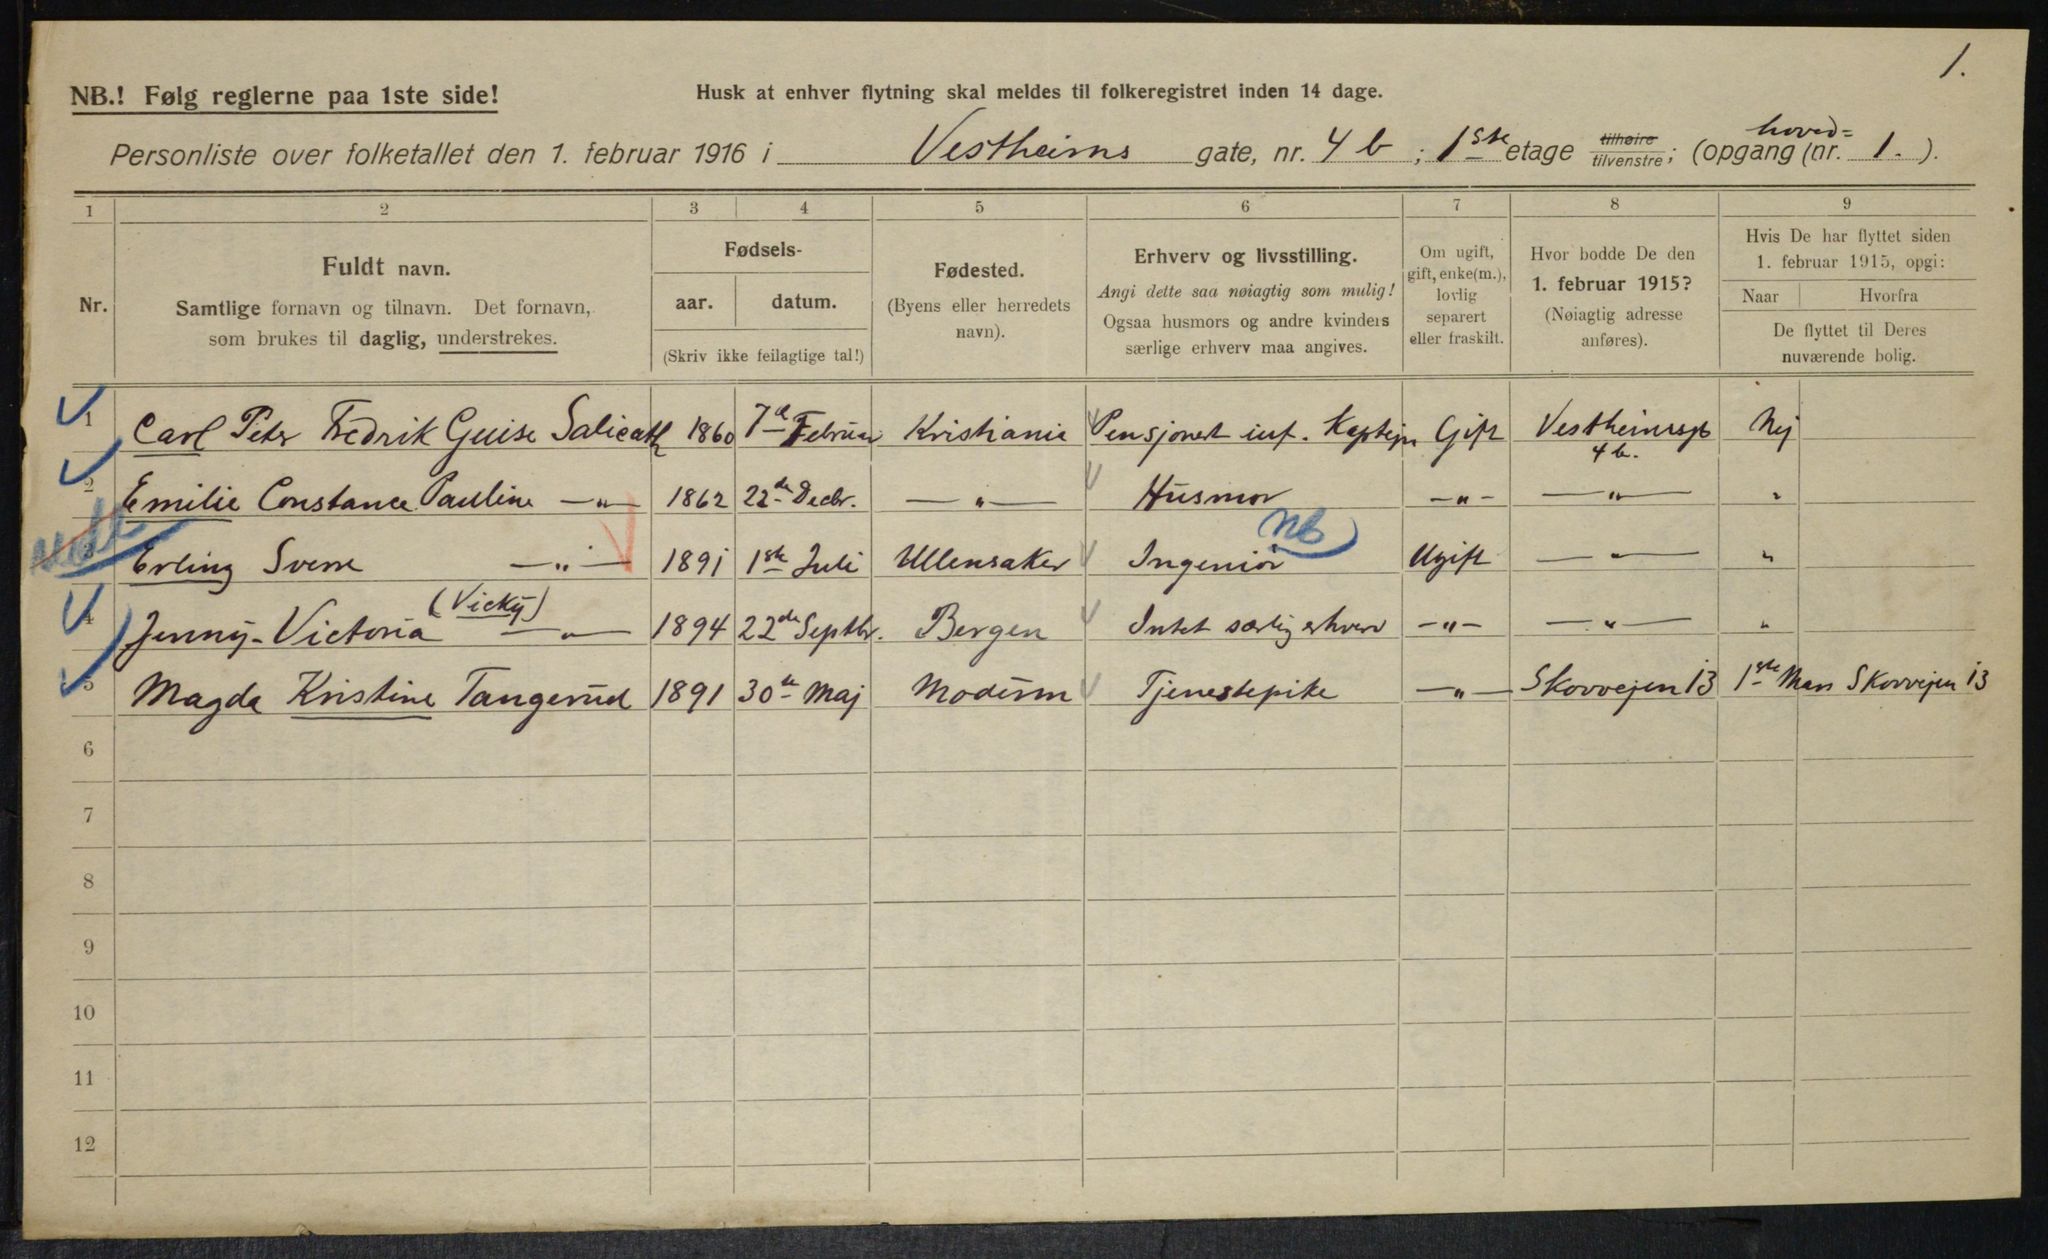 1.
NB.! Følg reglerne paa 1ste side!
Husk at enhver flytning skal meldes til folkeregistret inden 14 dage.
Personliste over folketallet den 1. februar 1916 i Vestheims gate, nr. 4 b ; 1ste etage tilhøire tilvenstre; (hoved= opgang (nr. 1. ).
1 2 3 4 5 6 7 8 9
Nr.
Fuldt navn.
Samtlige fornavn og tilnavn. Det fornavn,
som brukes til daglig, understrekes.
Fødsels-
aar. datum.
(Skriv ikke feilagtige tal!)
Fødested.
(Byens eller herredets
navn).
Erhverv og livsstilling.
Angi dette saa nøiagtig som mulig!
Ogsaa husmors og andre kvinders
særlige erhverv maa angives.
Om ugift,
gift, enke(m.),
lovlig
separert
eller fraskilt.
Hvor bodde De den
1. februar 1915?
(Nøiagtig adresse
anføres).
Hvis De har flyttet siden
1. februar 1915, opgi:
Naar Hvorfra
De flyttet til Deres
nuværende bolig.
1 Carl Peter Fredrik Guise Salicath 1860 7d Februar Kristiania Pensjonert inf. Kaptejn Gift Vestheimsgt 4 b. Nej
2 Emilie Constance Pauline —"— 1862 22de Decbr. —"— Husmor —"— —"— "
3 Erling Sverre —"— 1891 1ste Juli Ullensaker Ingeniør NB Ugift —"— "
4 Jenny-Victoria (Vicky) —"— 1894 22de Septbr. Bergen Intet særlig erhverv —"— —"— "
5 Magda Kristine Tangerud 1891 30te Maj Modum Tjenestepike —"— Skovvejen 13 1ste Mars Skovvejen 13
6
7
8
9
10
11
12